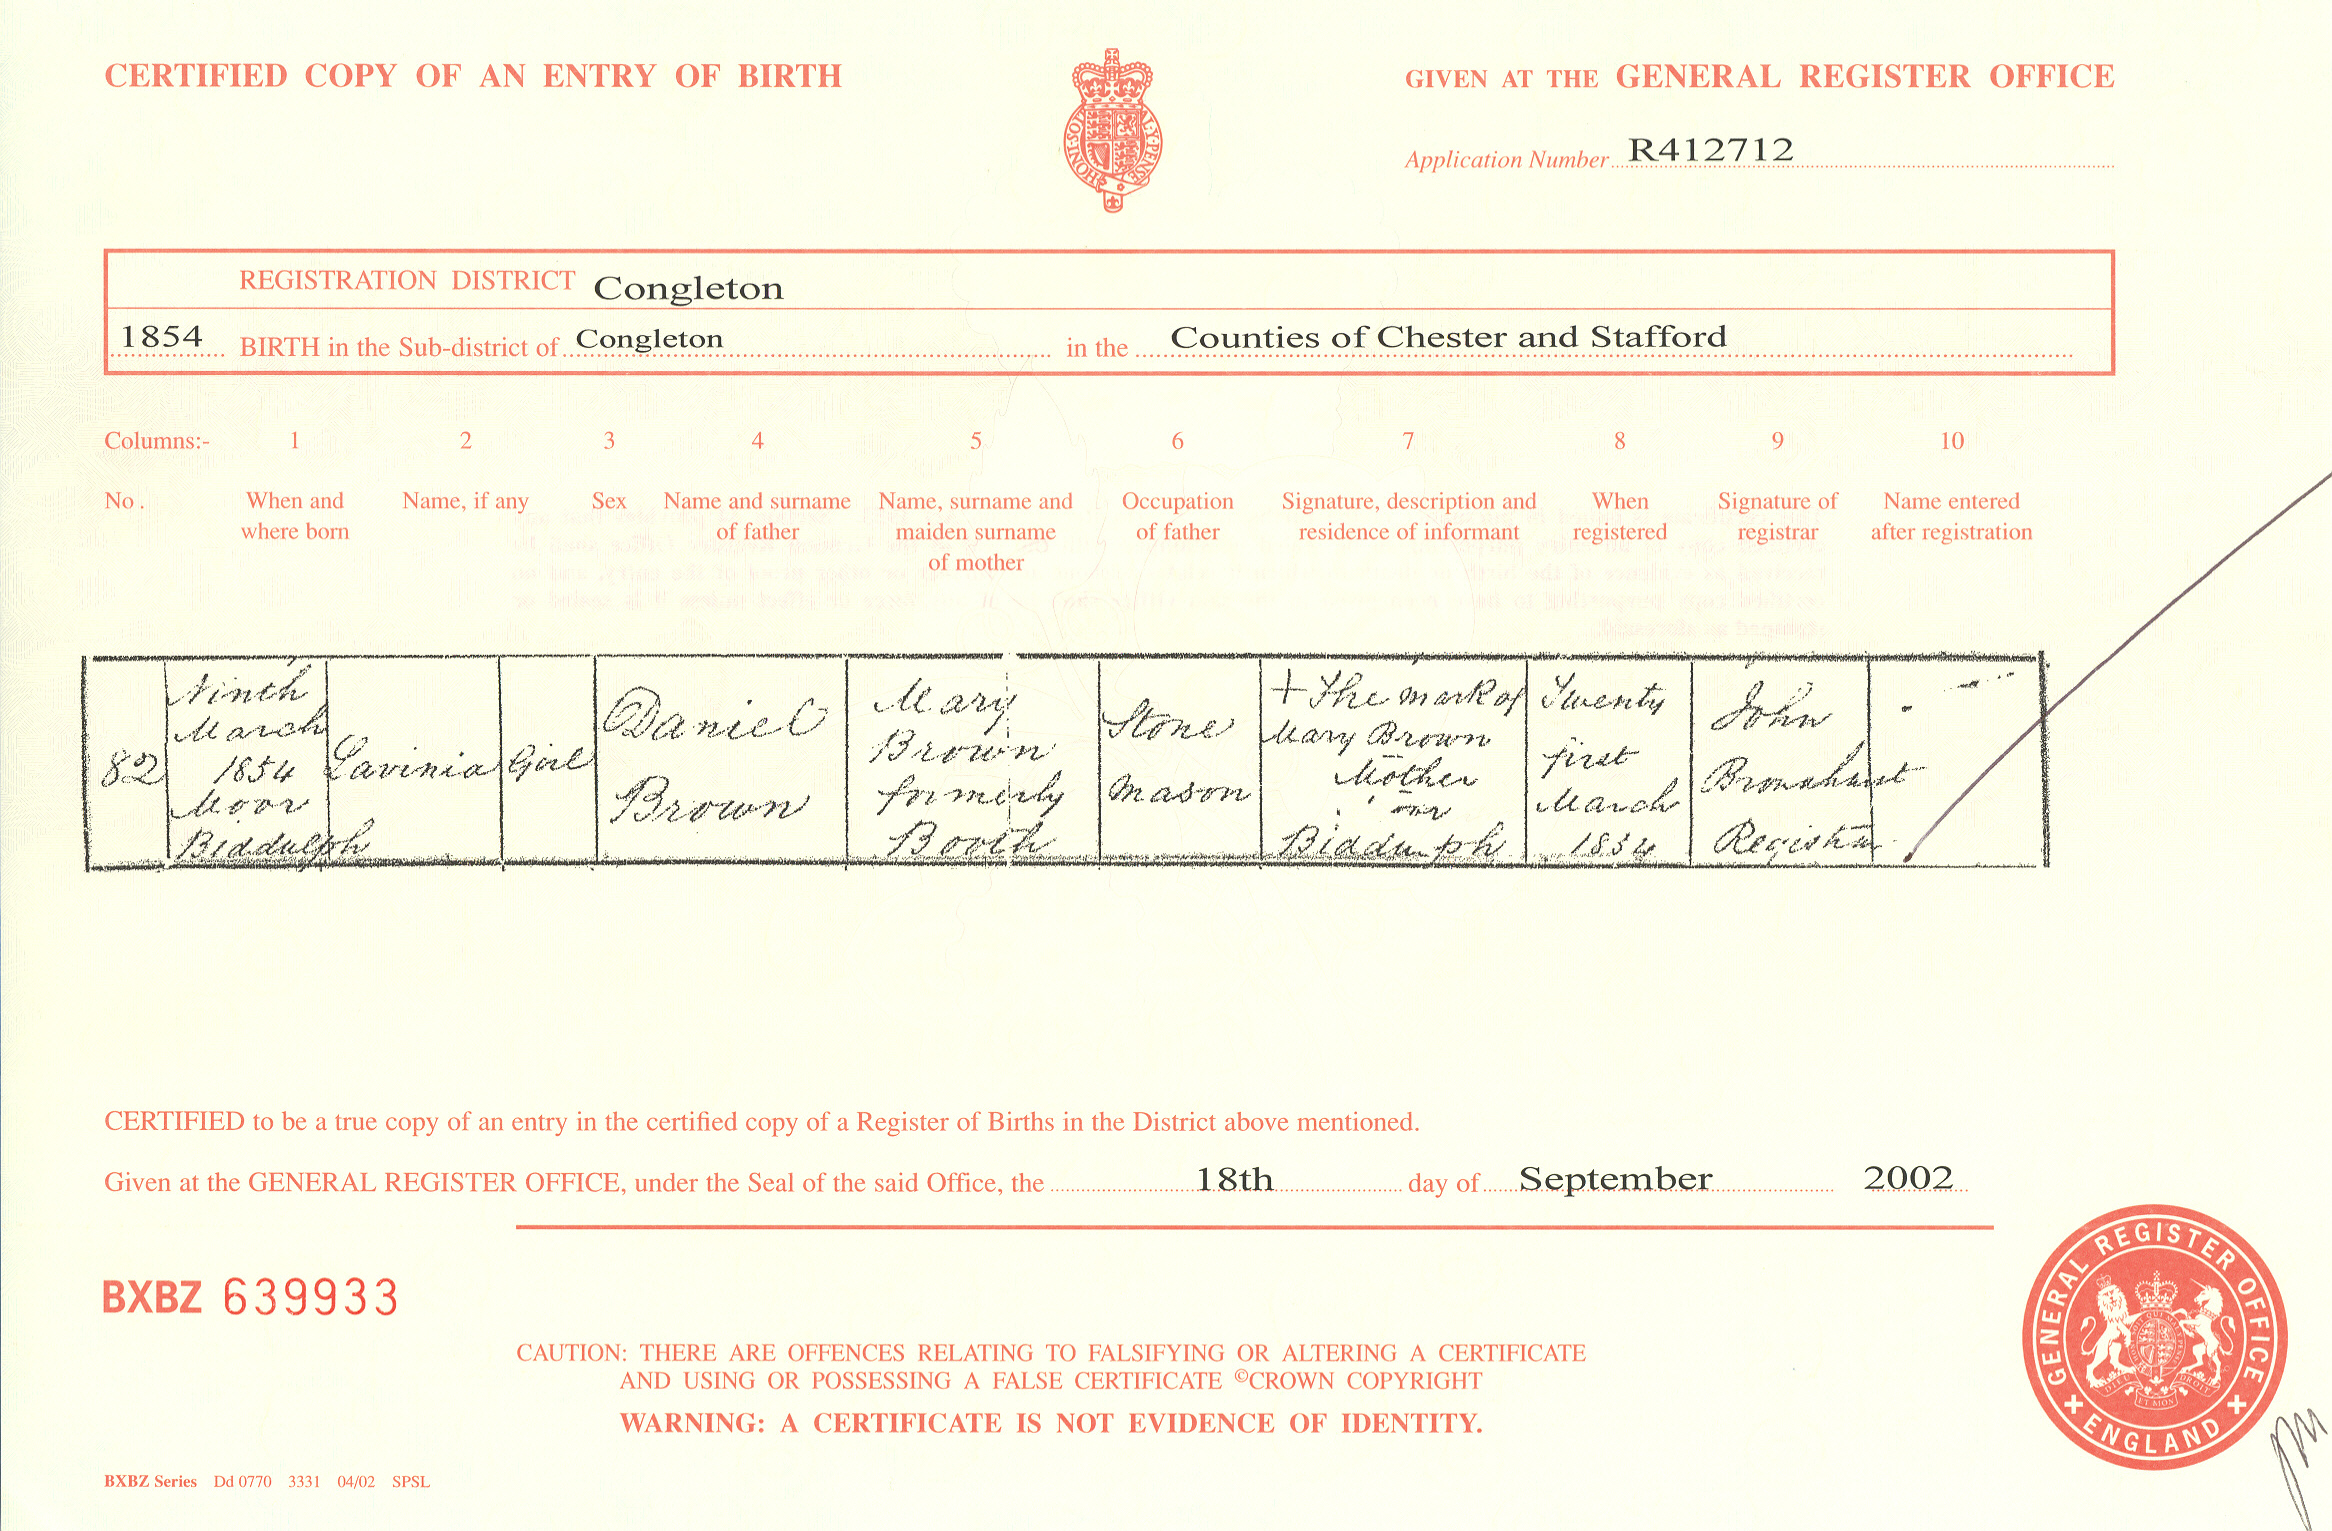 CERTIFIED COPY OF AN ENTRY OF BIRTH
GIVEN AT THE GENERAL REGISTER OFFICE
HONI·SOI
AL·Y·PENSE
Application Number R412712
REGISTRATION DISTRICT Congleton
1854 BIRTH in the Sub-district of Congleton in the Counties of Chester and Stafford
Columns:- 1 2 3 4 5 6 7 8 9 10
No. When and where born
Name, if any
Sex
Name and surname of father
Name, surname and maiden surname of mother
Occupation of father
Signature, description and residence of informant
When registered
Signature of registrar
Name entered after registration
82
Ninth
March
1854
Moor
Biddulph
Lavinia
Girl
Daniel
Brown
Mary
Brown
formerly
Booth
Stone
Mason
+ The mark of
Mary Brown
Mother
Biddulph
Twenty
first
March
1854
John
Registrar
CERTIFIED to be a true copy of an entry in the certified copy of a Register of Births in the District above mentioned.
Given at the GENERAL REGISTER OFFICE, under the Seal of the said Office, the 18th day of September 2002
BXBZ 639933
CAUTION: THERE ARE OFFENCES RELATING TO FALSIFYING OR ALTERING A CERTIFICATE
AND USING OR POSSESSING A FALSE CERTIFICATE ©CROWN COPYRIGHT
WARNING: A CERTIFICATE IS NOT EVIDENCE OF IDENTITY.
GENERAL REGISTER OFFICE
ENGLAND
BXBZ Series Dd 0770 3331 04/02 SPSL